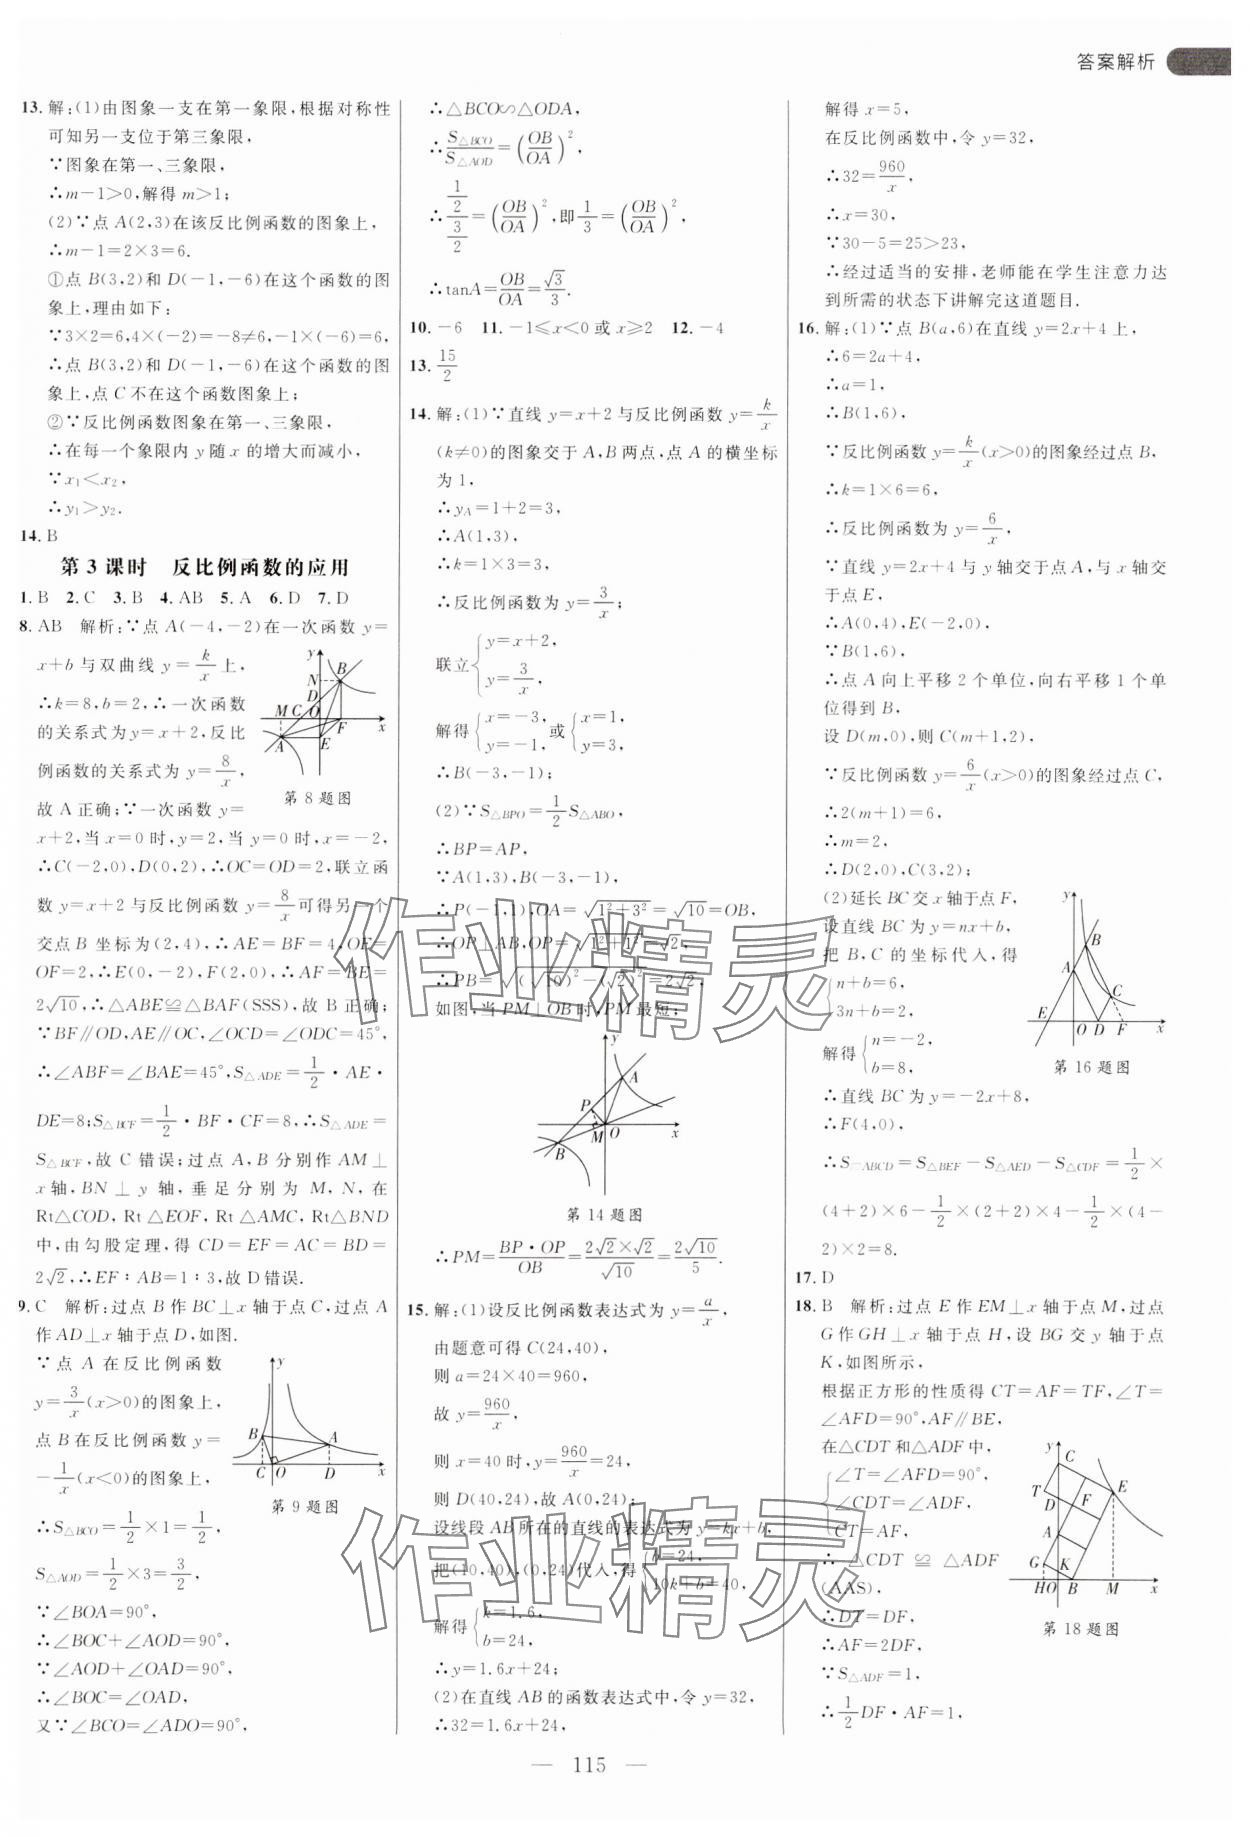 答案解析
13.解:(1)由图象一支在第一象限,根据对称性
可知另一支位于第三象限,
∵图象在第一、三象限,
∴m-1>0,解得 m>1;
(2)∵点 A(2,3)在该反比例函数的图象上,
∴m-1=2×3=6.
①点 B(3,2)和 D(-1,-6)在这个函数的图
象上,理由如下:
∵3×2=6,4×(-2)=-8≠6,-1×(-6)=6,
∴点 B(3,2)和 D(-1,-6)在这个函数的图
象上,点 C 不在这个函数图象上;
②∵反比例函数图象在第一、三象限,
∴在每一个象限内 y 随 x 的增大而减小,
∵x₁<x₂,
∴y₁>y₂.
14.B
第3课时 反比例函数的应用
1.B 2.C 3.B 4.AB 5.A 6.D 7.D
8.AB 解析:∵点 A(-4,-2)在一次函数 y=
x+b 与双曲线 y=k/x 上,
∴k=8,b=2,∴一次函数
的关系式为 y=x+2,反比
例函数的关系式为 y=8/x,
故 A 正确;∵一次函数 y=
x+2,当 x=0 时,y=2,当 y=0 时,x=-2,
∴C(-2,0),D(0,2),∴OC=OD=2,联立函
数 y=x+2 与反比例函数 y=8/x 可得另一个
交点 B 坐标为(2,4),∴AE=BF=4,OE=
OF=2,∴E(0,-2),F(2,0),∴AF=BE=
2√10,∴△ABE≌△BAF(SSS),故 B 正确;
∵BF∥OD,AE∥OC,∠OCD=∠ODC=45°,
∴∠ABF=∠BAE=45°,S△ADE=1/2·AE·
DE=8;S△BCF=1/2·BF·CF=8,∴S△ADE=
S△BCF,故 C 错误;过点 A,B 分别作 AM⊥
x 轴,BN⊥y 轴,垂足分别为 M,N,在
Rt△COD,Rt△EOF,Rt△AMC,Rt△BND
中,由勾股定理,得 CD=EF=AC=BD=
2√2,∴EF∶AB=1∶3,故 D 错误.
y
N
B
D
M
C
O
F
x
A
E
第8题图
9.C 解析:过点 B 作 BC⊥x 轴于点 C,过点 A
作 AD⊥x 轴于点 D,如图.
∵点 A 在反比例函数
y=3/x(x>0)的图象上,
点 B 在反比例函数 y=
-1/x(x<0)的图象上,
∴S△BCO=1/2×1=1/2,
S△AOD=1/2×3=3/2,
∵∠BOA=90°,
∴∠BOC+∠AOD=90°,
∵∠AOD+∠OAD=90°,
∴∠BOC=∠OAD,
又∵∠BCO=∠ADO=90°,
y
B
A
C
O
D
x
第9题图
∴△BCO∽△ODA,
∴S△BCO/S△AOD=(OB/OA)²,
∴(1/2)/(3/2)=(OB/OA)²,即1/3=(OB/OA)²,
∴tanA=OB/OA=√3/3.
10.-6 11.-1≤x<0 或 x≥2 12.-4
13.15/2
14.解:(1)∵直线 y=x+2 与反比例函数 y=k/x
(k≠0)的图象交于 A,B 两点,点 A 的横坐标
为 1,
∴yA=1+2=3,
∴A(1,3),
∴k=1×3=3,
∴反比例函数为 y=3/x;
联立{y=x+2,
y=3/x,
解得{x=-3, y=-1,或{x=1, y=3,
∴B(-3,-1);
(2)∵S△BPO=1/2S△ABO,
∴BP=AP,
∵A(1,3),B(-3,-1),
∴P(-1,1),OA=√(1²+3²)=√10=OB,
∴OP⊥AB,OP=√(1²+1²)=√2,
∴PB=√((√10)²-(√2)²)=2√2,
如图,当 PM⊥OB 时,PM 最短;
y
A
P
M
O
x
B
第14题图
∴PM=BP·OP/OB=2√2×√2/√10=2√10/5.
15.解:(1)设反比例函数表达式为 y=a/x,
由题意可得 C(24,40),
则 a=24×40=960,
故 y=960/x,
则 x=40 时,y=960/x=24,
则 D(40,24),故 A(0,24);
设线段 AB 所在的直线的表达式为 y=kx+b,
把(10,40),(0,24)代入,得{b=24,
10k+b=40,
解得{k=1.6,
b=24,
∴y=1.6x+24;
(2)在直线 AB 的函数表达式中,令 y=32,
∴32=1.6x+24,
解得 x=5,
在反比例函数中,令 y=32,
∴32=960/x,
∴x=30,
∵30-5=25>23,
∴经过适当的安排,老师能在学生注意力达
到所需的状态下讲解完这道题目.
16.解:(1)∵点 B(a,6)在直线 y=2x+4 上,
∴6=2a+4,
∴a=1,
∴B(1,6),
∵反比例函数 y=k/x(x>0)的图象经过点 B,
∴k=1×6=6,
∴反比例函数为 y=6/x,
∵直线 y=2x+4 与 y 轴交于点 A,与 x 轴交
于点 E,
∴A(0,4),E(-2,0),
∵B(1,6),
∴点 A 向上平移 2 个单位,向右平移 1 个单
位得到 B,
设 D(m,0),则 C(m+1,2),
∵反比例函数 y=6/x(x>0)的图象经过点 C,
∴2(m+1)=6,
∴m=2,
∴D(2,0),C(3,2);
(2)延长 BC 交 x 轴于点 F,
设直线 BC 为 y=nx+b,
把 B,C 的坐标代入,得
{n+b=6,
3n+b=2,
解得{n=-2,
b=8,
∴直线 BC 为 y=-2x+8,
∴F(4,0),
y
B
A
C
E
O
D
F
x
第16题图
∴S▱ABCD=S△BEF-S△AED-S△CDF=1/2×
(4+2)×6-1/2×(2+2)×4-1/2×(4-
2)×2=8.
17.D
18.B 解析:过点 E 作 EM⊥x 轴于点 M,过点
G 作 GH⊥x 轴于点 H,设 BG 交 y 轴于点
K,如图所示,
根据正方形的性质得 CT=AF=TF,∠T=
∠AFD=90°,AF∥BE,
在△CDT 和△ADF 中,
{∠T=∠AFD=90°,
∠CDT=∠ADF,
CT=AF,
∴△CDT≌△ADF
(AAS),
∴DT=DF,
∴AF=2DF,
∵S△ADF=1,
∴1/2DF·AF=1,
y
C
T
E
D
F
A
G
K
H
O
B
M
x
第18题图
— 115 —
作业精灵
作业精灵